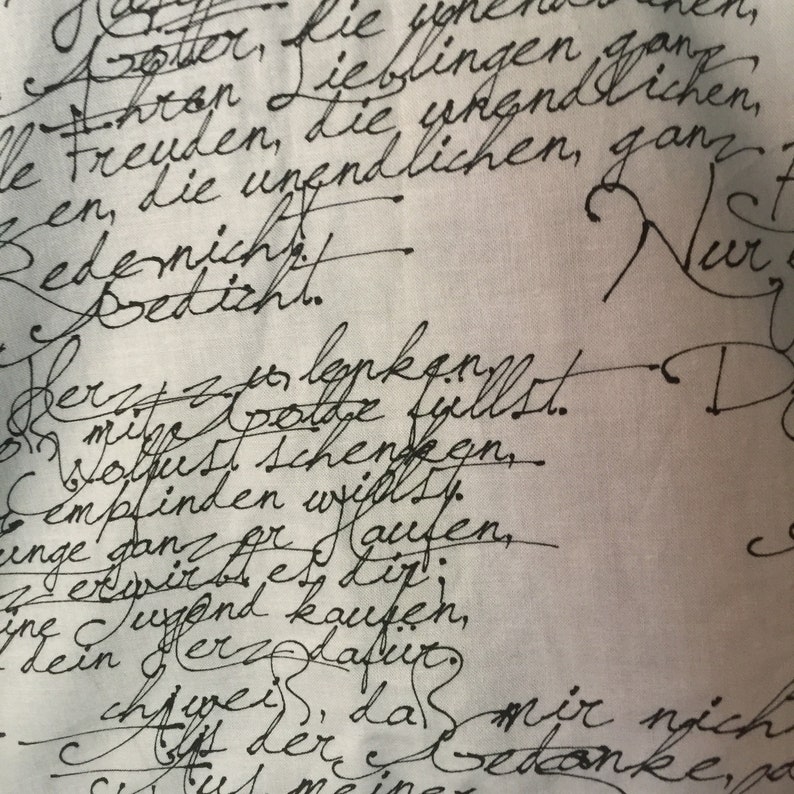 Götter, die unendlichen,
Ihren Lieblingen ganz
Freuden, die unendlichen,
die unendlichen, ganz
Rede nicht.
Nur
Gedicht.
Herz zu lenken,
mit Golde füllst.
Wollust schenken,
empfinden willst.
ganzer Haufen,
erwirbt es dir;
Jugend kaufen,
dein Herz dafür.
ch weiß, daß mir nich
Als der Gedanke,
Aus meiner